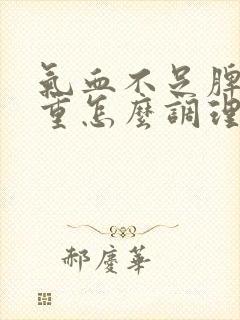 氣血不足脾
重怎麼調理
郝慶華